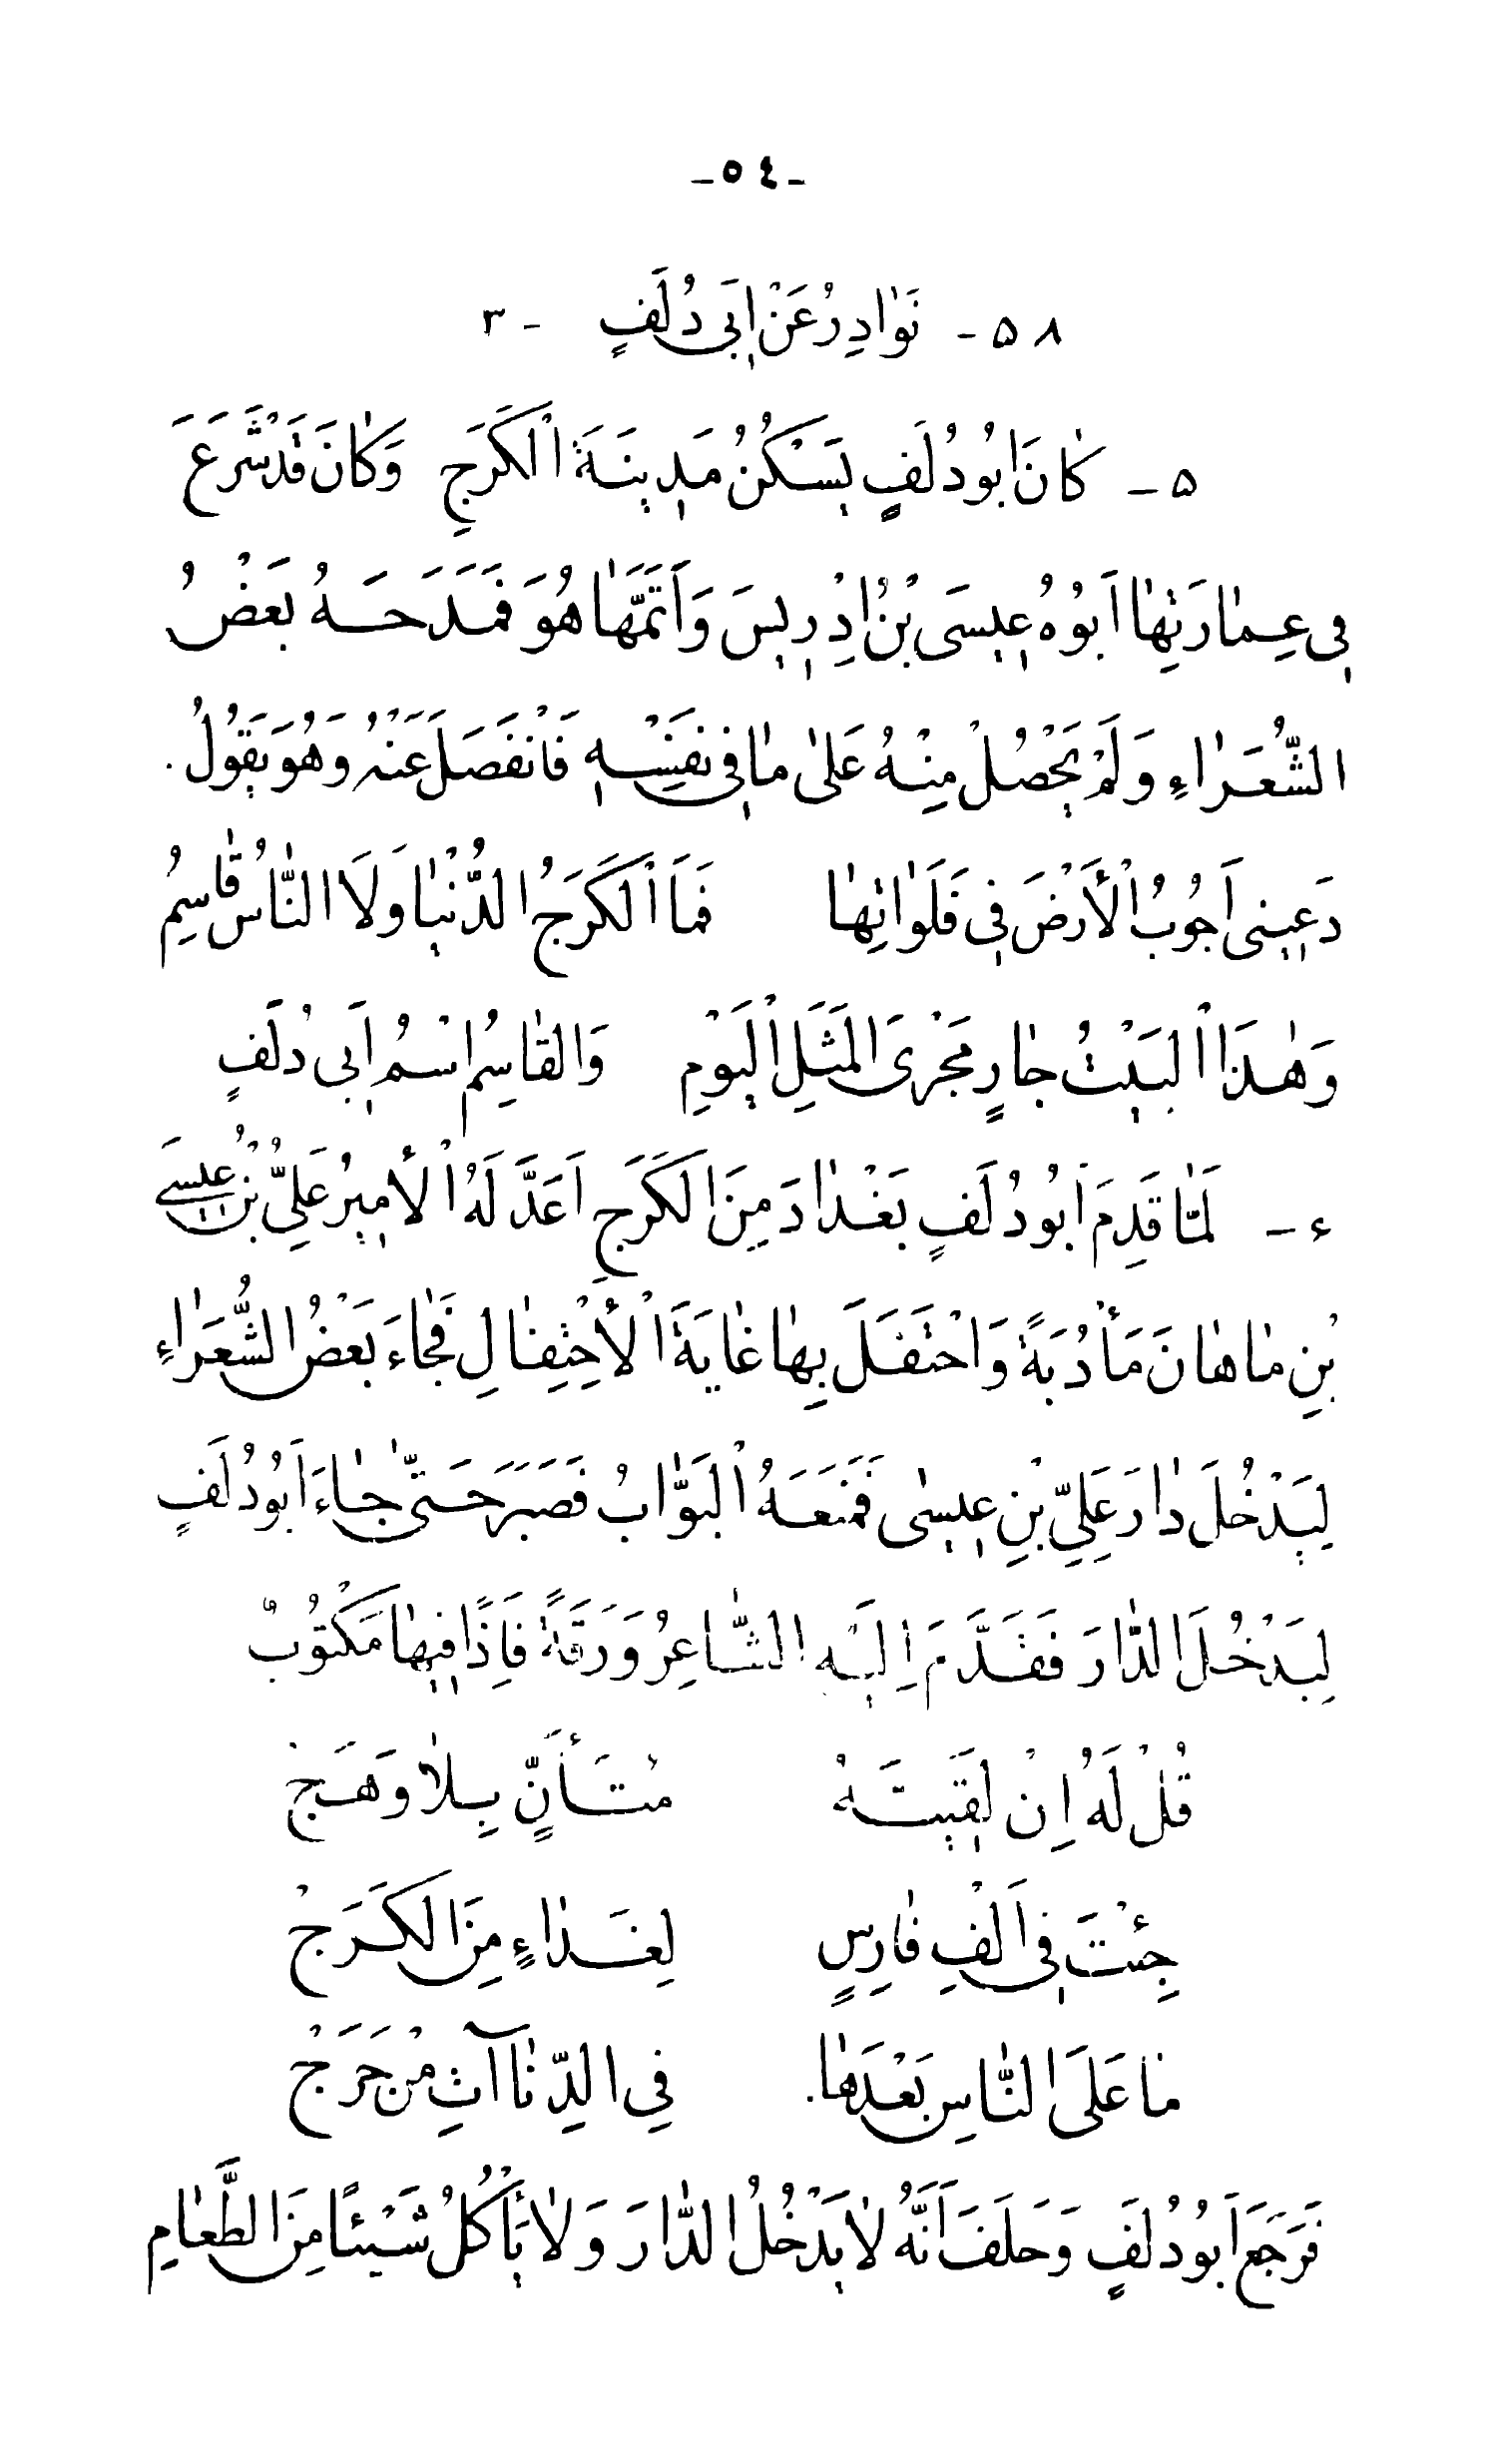 -٥٤-
٥٨ - نَوٰادِرُ عَنْ اَبِی دُلَفٍ - ٣
٥ - كٰانَ اَبُو دُلَفٍ يَسْكُنُ مَدِينَةَ الْكَرَجِ وَكٰانَ قَدْ شَرَعَ
فِی عِمٰارَتِهٰا اَبُوهُ عِيسَى بْنُ اِدْرِيسَ وَاَتَمَّهٰا هُوَ فَمَدَحَهُ بَعْضُ
الشُّعَرٰاءِ وَلَمْ يَحْصُلْ مِنْهُ عَلىٰ مٰا فِی نَفْسِهِ فَانْفَصَلَ عَنْهُ وَهُوَ يَقُولُ.
دَعِينِی اَجُوبُ الْأَرْضَ فِی فَلَوٰاتِهٰا فَمَا الْكَرَجُ الدُّنْيٰا وَلَا النّٰاسُ قٰاسِمُ
وَهٰذَا الْبَيْتُ جٰارٍ مَجْرَى الْمَثَلِ الْيَوْمِ وَالْقٰاسِمُ اسْمُ اَبِی دُلَفٍ
ء - لَمّٰا قَدِمَ اَبُو دُلَفٍ بَغْدٰادَ مِنَ الْكَرَجِ اَعَدَّ لَهُ الْأَمِيرُ عَلِيُّ بْنُ عِيسَى
بْنِ مٰاهٰانَ مَأْدُبَةً وَاحْتَفَلَ بِهٰا غٰايَةَ الْأِحْتِفٰالِ فَجٰاءَ بَعْضُ الشُّعَرٰاءِ
لِيَدْخُلَ دٰارَ عَلِيِّ بْنِ عِيسىٰ فَمَنَعَهُ الْبَوّٰابُ فَصَبَرَ حَتّىٰ جٰاءَ اَبُو دُلَفٍ
لِيَدْخُلَ الدّٰارَ فَقَدَّمَ اِلَيْهِ الشّٰاعِرُ وَرَقَةً فَاِذًا فِيهٰا مَكْتُوبٌ
قُلْ لَهُ اِنْ لَقِيتَهُ مُتَأَنٍّ بِلٰا وَهَجْ
جِئْتَ فِی اَلْفِ فٰارِسٍ لِغَدٰاءٍ مِنَ الْكَرَجْ
مٰا عَلَى النّٰاسِ بَعْدَهٰا. فِی الدِّنٰاآتِ مْنْ حَرَجْ
فَرَجَعَ اَبُو دُلَفٍ وَحَلَفَ اَنَّهُ لٰا يَدْخُلُ الدّٰارَ وَلٰا يَأْكُلُ شَيْئًا مِنَ الطَّعٰامِ